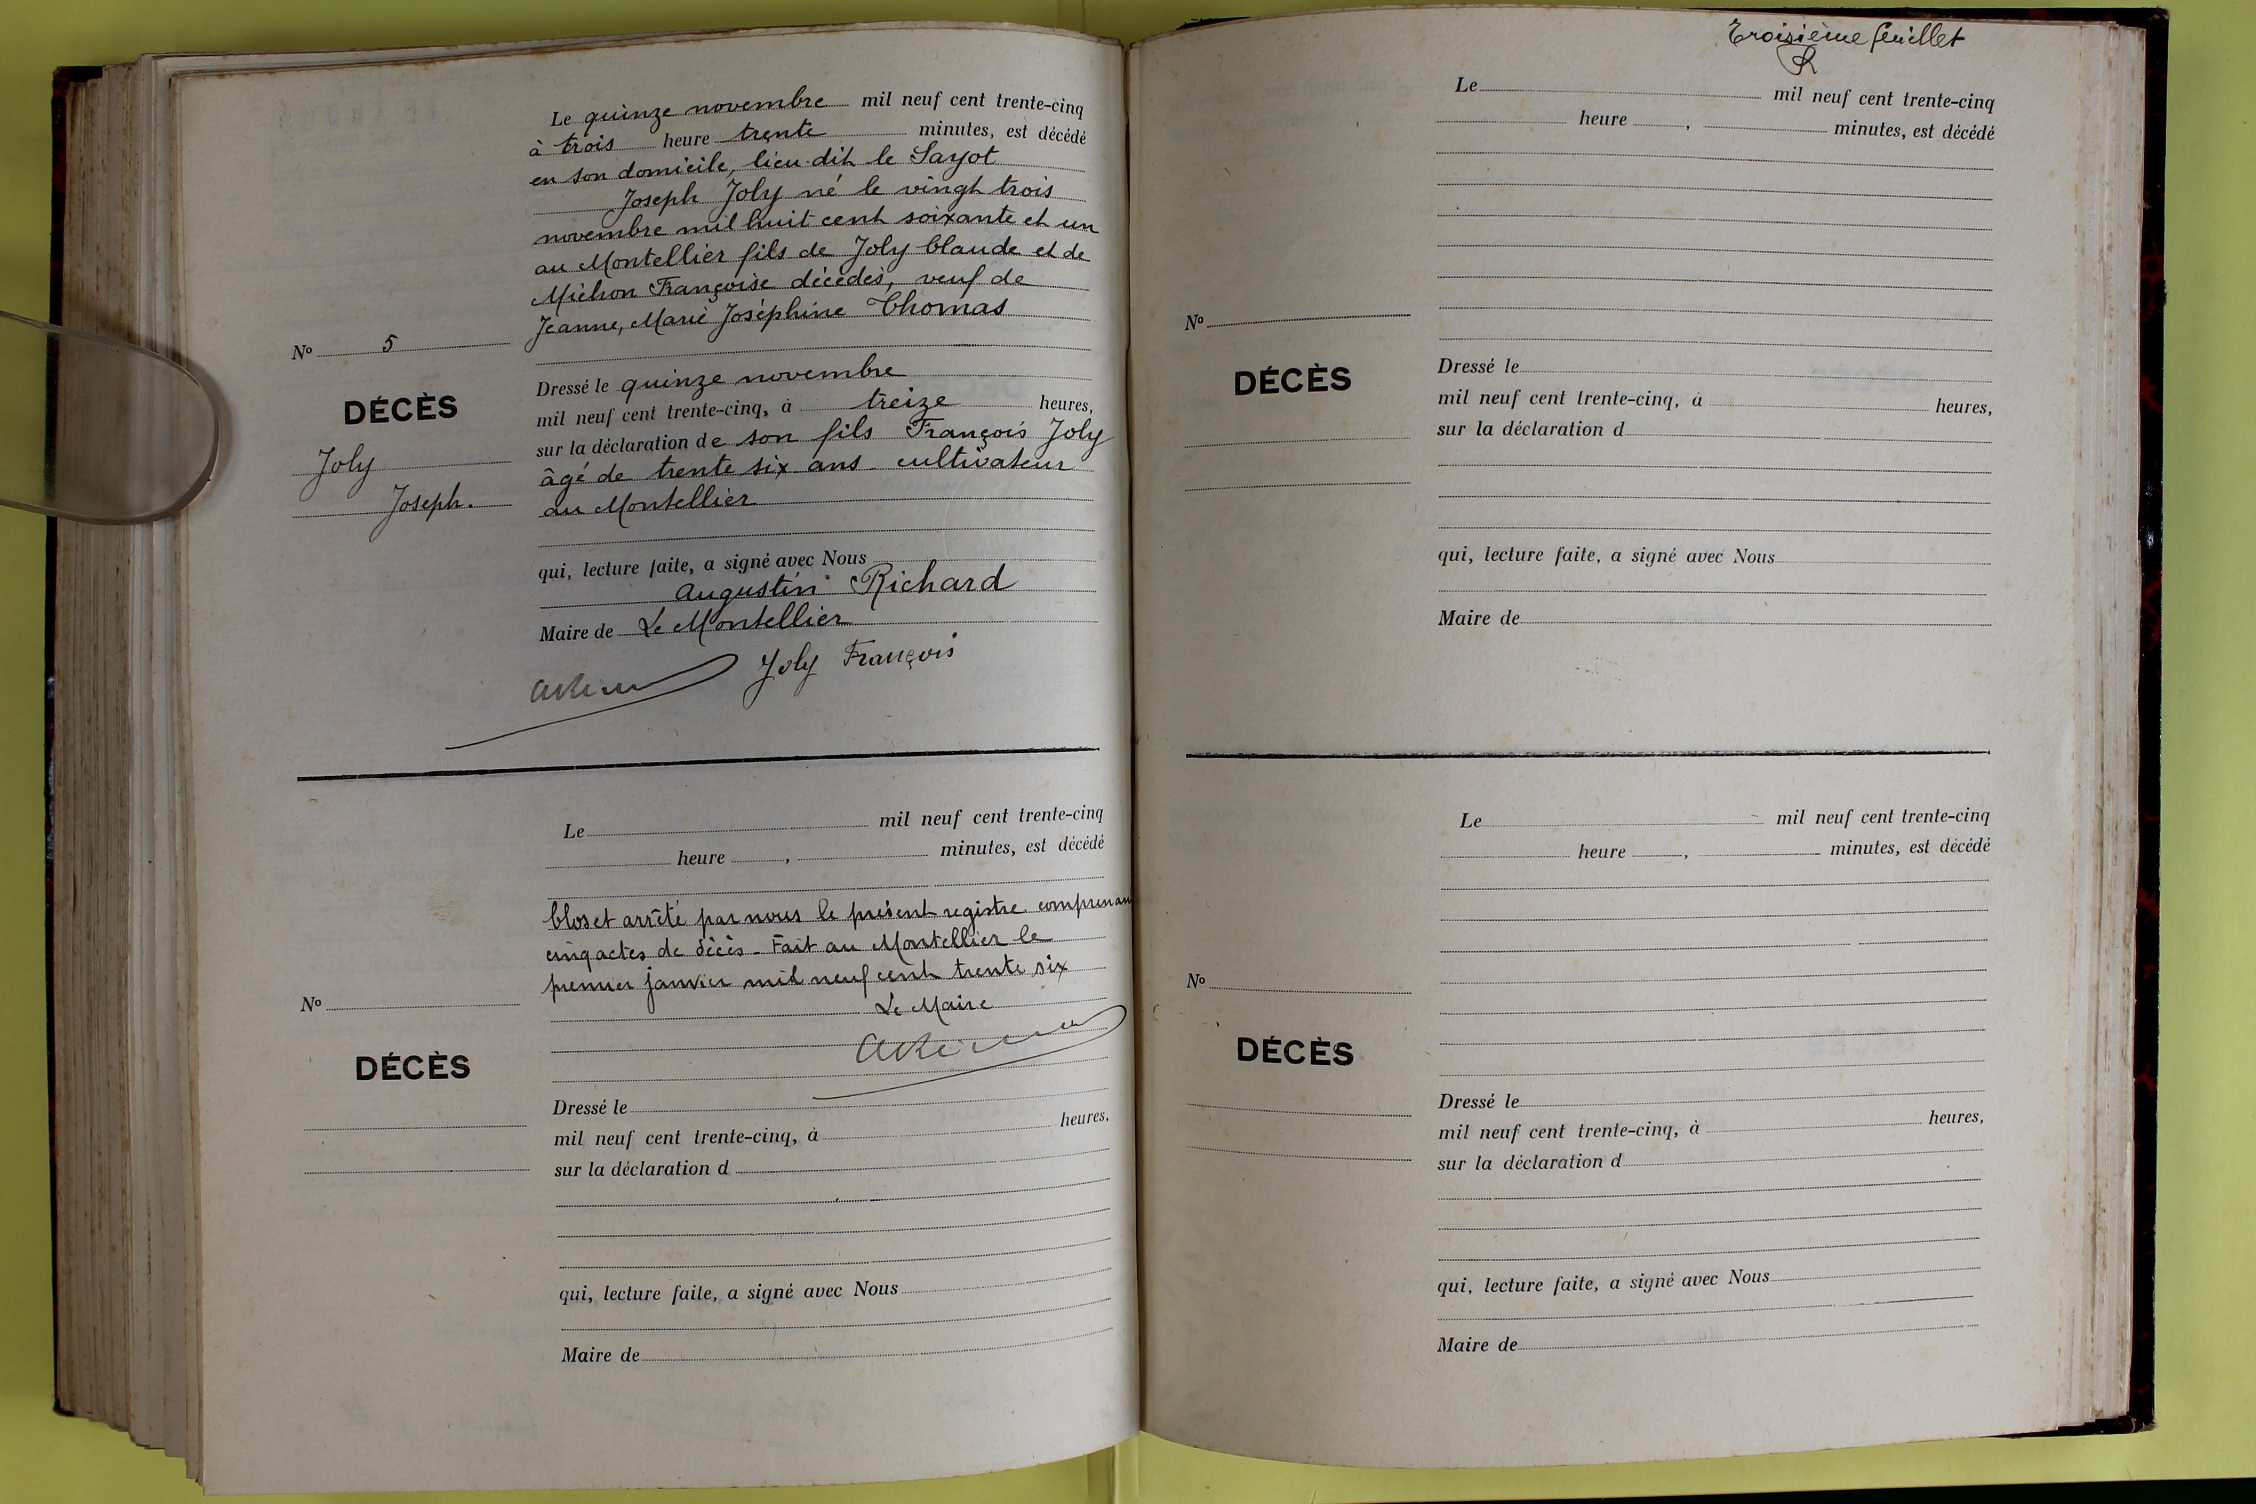 Le quinze novembre mil neuf cent trente-cinq
à trois heure trente minutes, est décédé
en son domicile, lieu dit le Sayot
Joseph Joly né le vingt trois
novembre mil huit cent soixante et un
au Montellier fils de Joly Claude et de
Michon Françoise décédés, veuf de
Jeanne, Marie Joséphine Thomas
No 5
DÉCÈS
Joly
Joseph.
Dressé le quinze novembre
mil neuf cent trente-cinq, à treize heures,
sur la déclaration de son fils François Joly
âgé de trente six ans cultivateur
au Montellier
qui, lecture faite, a signé avec Nous
Augustin Richard
Maire de Le Montellier
Joly François
Le mil neuf cent trente-cinq
heure , minutes, est décédé
Clos et arrêté par nous le présent registre comprenant
cinq actes de décès - Fait au Montellier le
premier janvier mil neuf cent trente six
Le Maire
No
DÉCÈS
Dressé le
mil neuf cent trente-cinq, à heures.
sur la déclaration d
qui, lecture faite, a signé avec Nous
Maire de
Troisième feuillet
Le mil neuf cent trente-cinq
heure , minutes, est décédé
No
DÉCÈS
Dressé le
mil neuf cent trente-cinq, à heures,
sur la déclaration d
qui, lecture faite, a signé avec Nous
Maire de
Le mil neuf cent trente-cinq
heure , minutes, est décédé
No
DÉCÈS
Dressé le
mil neuf cent trente-cinq, à heures,
sur la déclaration d
qui, lecture faite, a signé avec Nous
Maire de